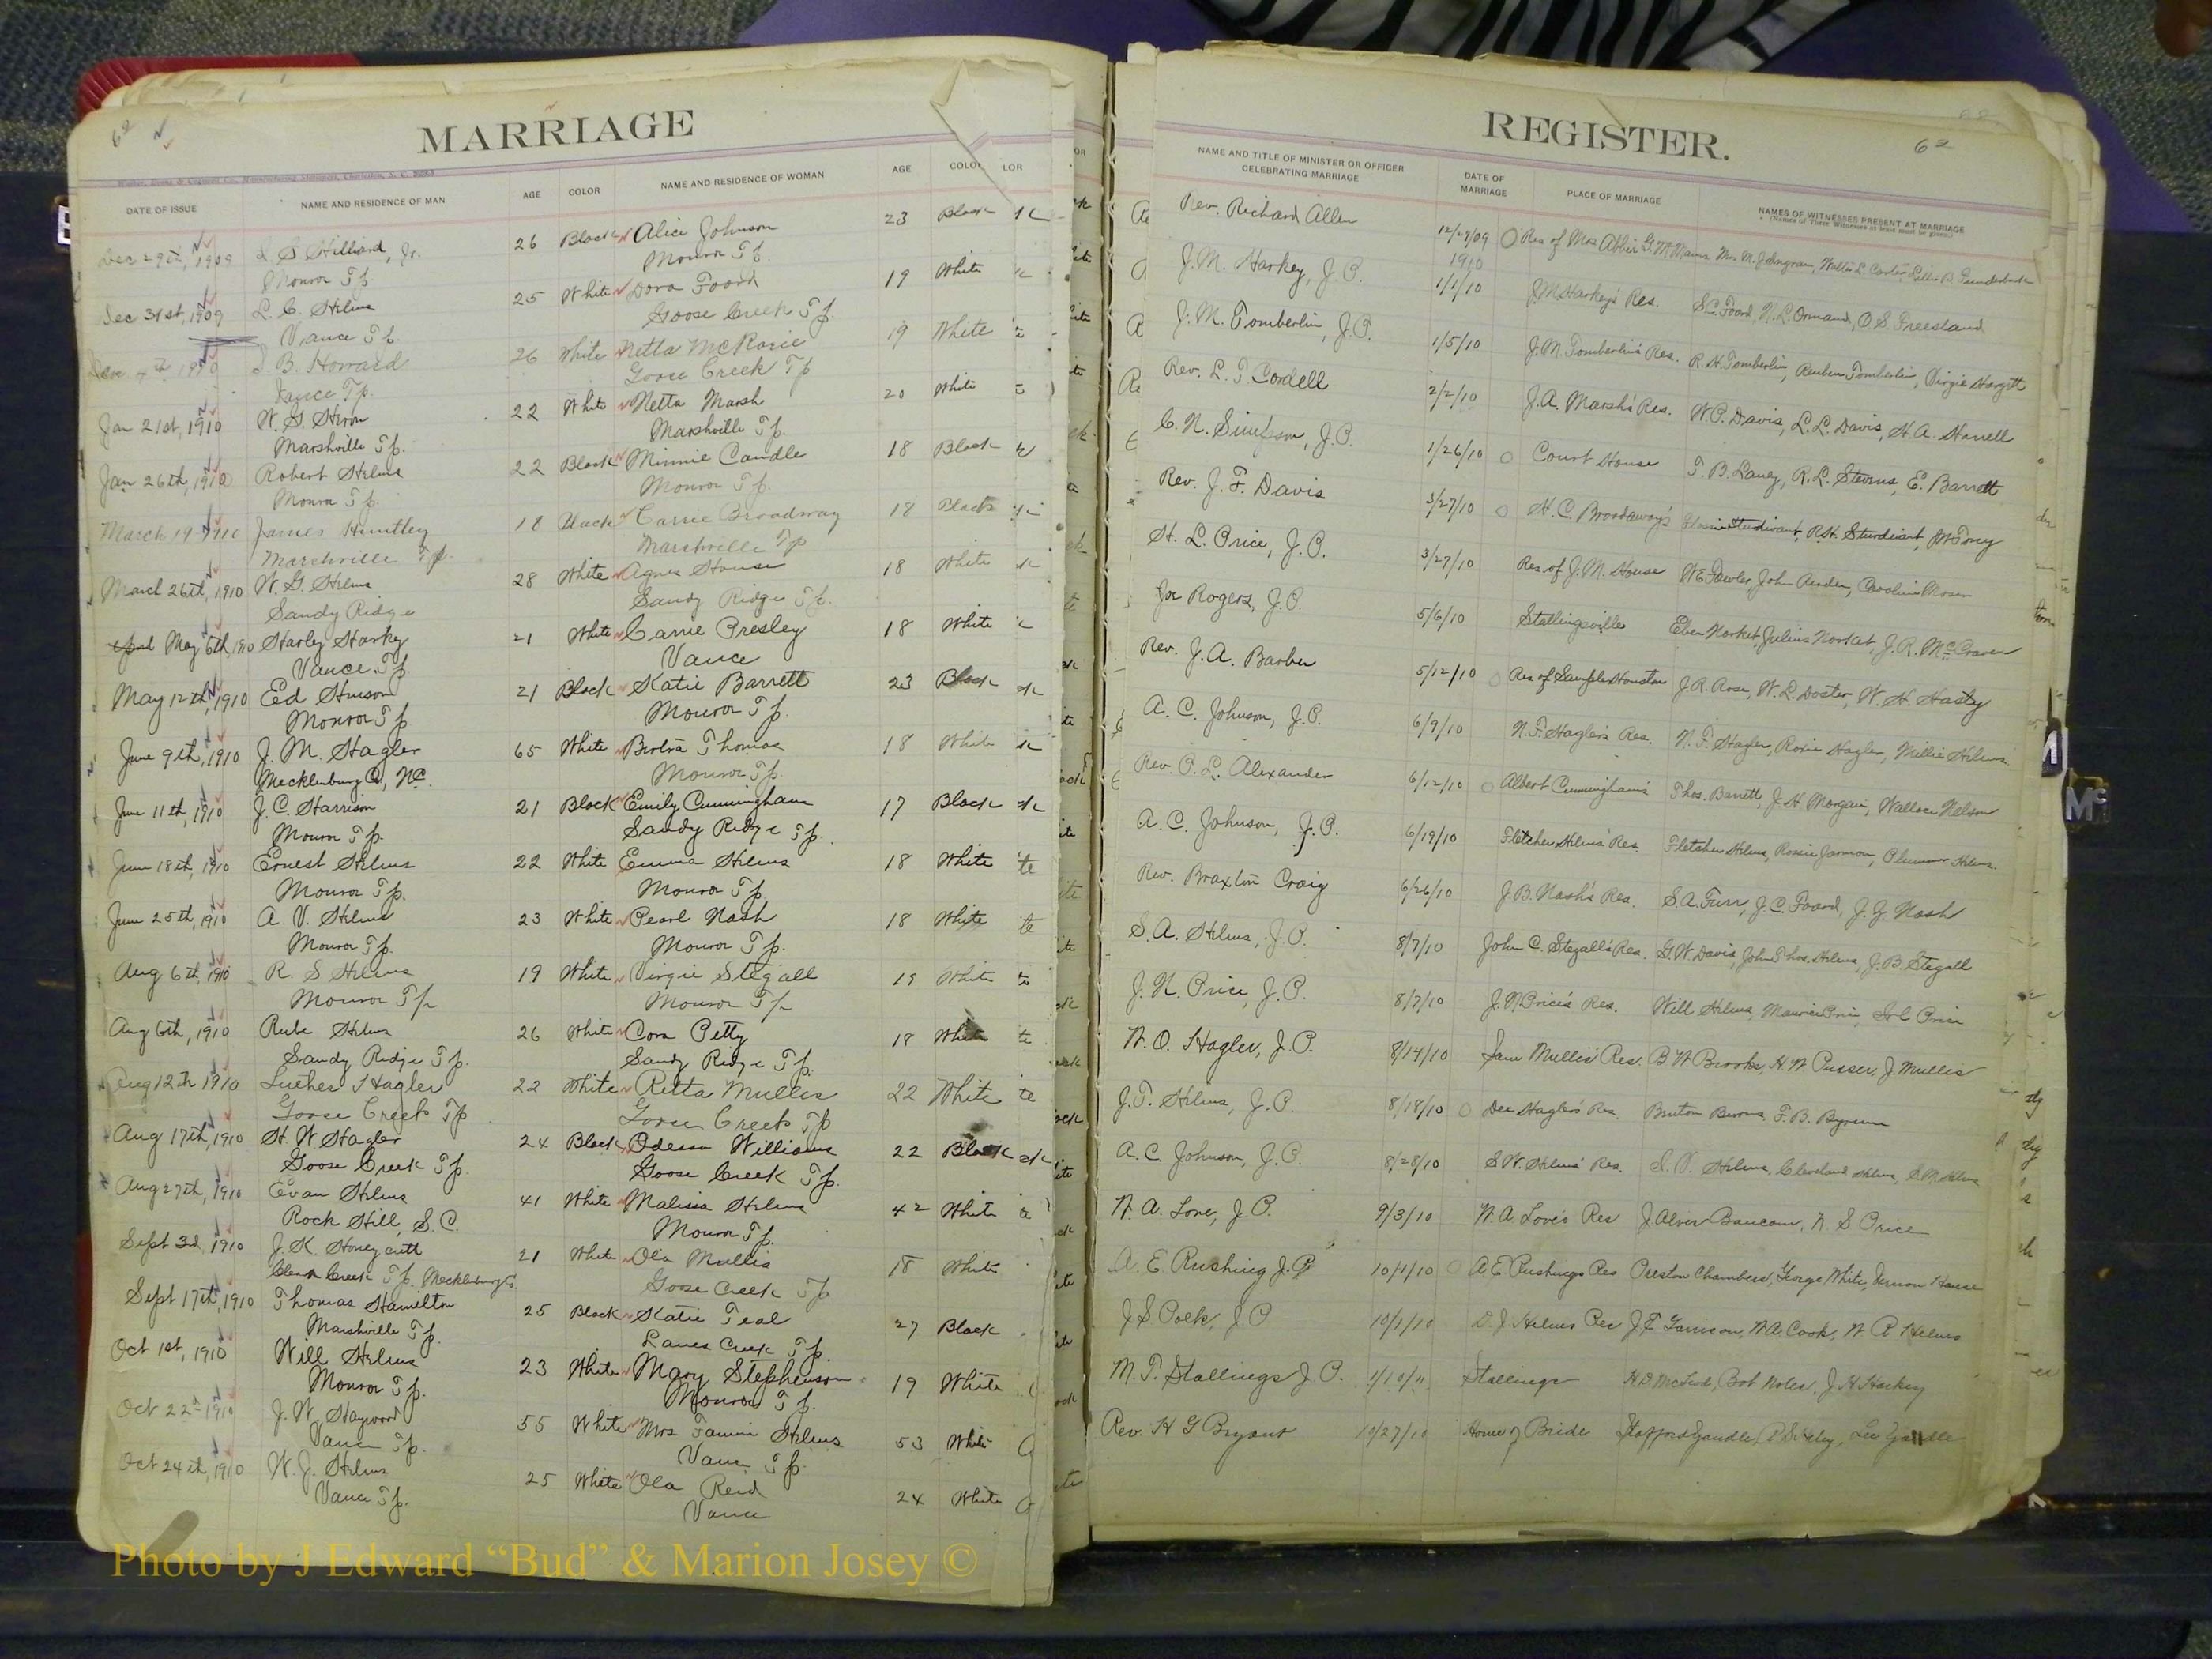 62
MARRIAGE
DATE OF ISSUE NAME AND RESIDENCE OF MAN AGE COLOR NAME AND RESIDENCE OF WOMAN AGE COLOR
Dec 29th, 1909 L. S. Hilliard, Jr. 26 Black Alice Johnson 23 Black
Monroe Tp. Monroe Tp.
Dec 31st, 1909 L. C. Helms 25 White Dora Foard 19 White
Vance Tp Goose Creek Tp.
1910 B. Howard 26 White Netta McRorie 19 White
Vance Tp. Goose Creek Tp
Jan 21st, 1910 W. G. 22 White Netta Marsh 20 White
Marshville Tp. Marshville Tp.
Jan 26th, 1910 Robert Helms 22 Black Minnie Caudle 18 Black
Monroe Tp. Monroe Tp.
March 19 1910 James Huntley 18 Black Carrie Broadway 18 Black
Marshville Tp. Marshville Tp
March 26th, 1910 W. G. Helms 28 White Agnes House 18 White
Sandy Ridge Sandy Ridge Tp.
May 6th, 1910 Harley Harkey 21 White Carrie Presley 18 White
Vance Tp. Vance
May 12th, 1910 Ed Hinson 21 Black Katie Barrett 23 Black
Monroe Tp. Monroe Tp.
June 9th, 1910 J. M. Hagler 65 White Thomas 18 White
Mecklenburg Co, NC. Monroe Tp.
June 11th, 1910 J. C. Harrison 21 Black Emily Cunningham 17 Black
Monroe Tp. Sandy Ridge Tp.
June 18th, 1910 Ernest Helms 22 White Emma Helms 18 White
Monroe Tp. Monroe Tp.
June 25th, 1910 A. V. Helms 23 White Pearl Nash 18 White
Monroe Tp. Monroe Tp.
Aug 6th, 1910 R S Helms 19 White Virgie Stegall 19 White
Monroe Tp Monroe Tp
Aug 6th, 1910 Rube Helms 26 White Cora Petty 18 White
Sandy Ridge Tp. Sandy Ridge Tp.
Aug 12th 1910 Luther Hagler 22 White Retta Mulles 22 White
Goose Creek Tp Goose Creek Tp
Aug 17th, 1910 H. W. Hagler 24 Black Odessa Williams 22 Black
Goose Creek Tp. Goose Creek Tp.
Aug 27th, 1910 Evan Helms 41 White Malissa Helms 42 White
Rock Hill, S.C. Monroe Tp.
Sept 3d, 1910 J. K. Honeycutt 21 White Ola Mullis 18 White
Clear Creek Tp. Mecklenburg Co. Goose Creek Tp
Sept 17th, 1910 Thomas Hamilton 25 Black Katie Teal 27 Black
Marshville Tp. Lanes Creek Tp.
Oct 1st, 1910 Will Helms 23 White Mary Stephenson 19 White
Monroe Tp. Monroe Tp.
Oct 22d 1910 J. W. Haywood 55 White Mrs Helms 53 White
Vance Tp. Vance Tp.
Oct 24th, 1910 W. J. Helms 25 White Ola Reid 24 White
Vance Tp. Vance
REGISTER.
62
NAME AND TITLE OF MINISTER OR OFFICER CELEBRATING MARRIAGE DATE OF MARRIAGE PLACE OF MARRIAGE NAMES OF WITNESSES PRESENT AT MARRIAGE
(Names of Three Witnesses at least must be given.)
Rev. Richard Allen 12/29/09 Res of Mrs
1910
J. M. Harkey, J.P. 1/1/10 J M Harkey's Res. S.C. Foard, N. L. Ormand, O S Freesland
J. M. Tomberlin, J.P. 1/5/10 J. M. Tomberlin's Res. R. H. Tomberlin, Reuben Tomberlin, Virgie Hargett
Rev. L. T. Cordell 2/2/10 J. A. Marsh's Res. W. P. Davis, L. L. Davis, H. A. Harrell
C. N. Simpson, J.P. 1/26/10 Court House T. B. Laney, R. L. Stevens, E. Barrett
Rev. J. F. Davis 3/27/10 H. C. Broadaway's Sturdivant, R.H. Sturdivant,
H. L. Price, J.P. 3/27/10 Res of J. M. House W E Fowler, John Caroline Moser
Joe Rogers, J.P. 5/6/10 Stallingsville Eben Norket, Julius Norket, J. R. McCraven
Rev. J. A. Barber 5/12/10 Res of Sample Houston J. R. Rose, W. L. Doster, W. H. Hasty
A. C. Johnson, J.P. 6/9/10 N. F. Hagler's Res. N. F. Hagler, Rosie Hagler, Millie Helms
Rev. P. L. Alexander 6/12/10 Albert Cunningham's Thos. Barrett, J. H. Morgan, Wallace Nelson
A. C. Johnson, J.P. 6/19/10 Fletcher Helms' Res. Fletcher Helms, Rossie Jarmon, Plummer Helms
Rev. Braxton Craig 6/26/10 J. B. Nash's Res. S. A. Furr, J. C. Foard, J. G. Nash
S. A. Helms, J.P. 8/7/10 John C. Stegall's Res. G. W. Davis, John Thos. Helms, J. B. Stegall
J. N. Price, J.P. 8/7/10 J. N. Price's Res. Will Helms, Price
W. O. Hagler, J.P. 8/14/10 Mullis' Res. B W Brooks, H. W Pusser, J. Mullis
J. T. Helms, J.P. 8/18/10 Dee Hagler's Res. Burton Burns, F. B. Byrum
A. C. Johnson, J.P. 8/28/10 S. W. Helms' Res. Helms, Cleveland Helms, S. M Helms
W. A. Love, J P. 9/3/10 W. A. Love's Res J Alver Baucom, N. S Price
A. E Rushing J. P 10/1/10 A E Rushings Res Preston Chambers, George White, Vernon House
J S Polk, J P 10/1/10 D. J. Helms Res J. E Garrison, W A Cook, W. R Helms
M. T. Stallings J P. Stallings H D McLeod, Bob Noles, J H Harkey
Rev. H G Bryant 10/27/10 Home of Bride Stafford Yandle, Lee Yandle
Photo by J Edward “Bud” & Marion Josey ©